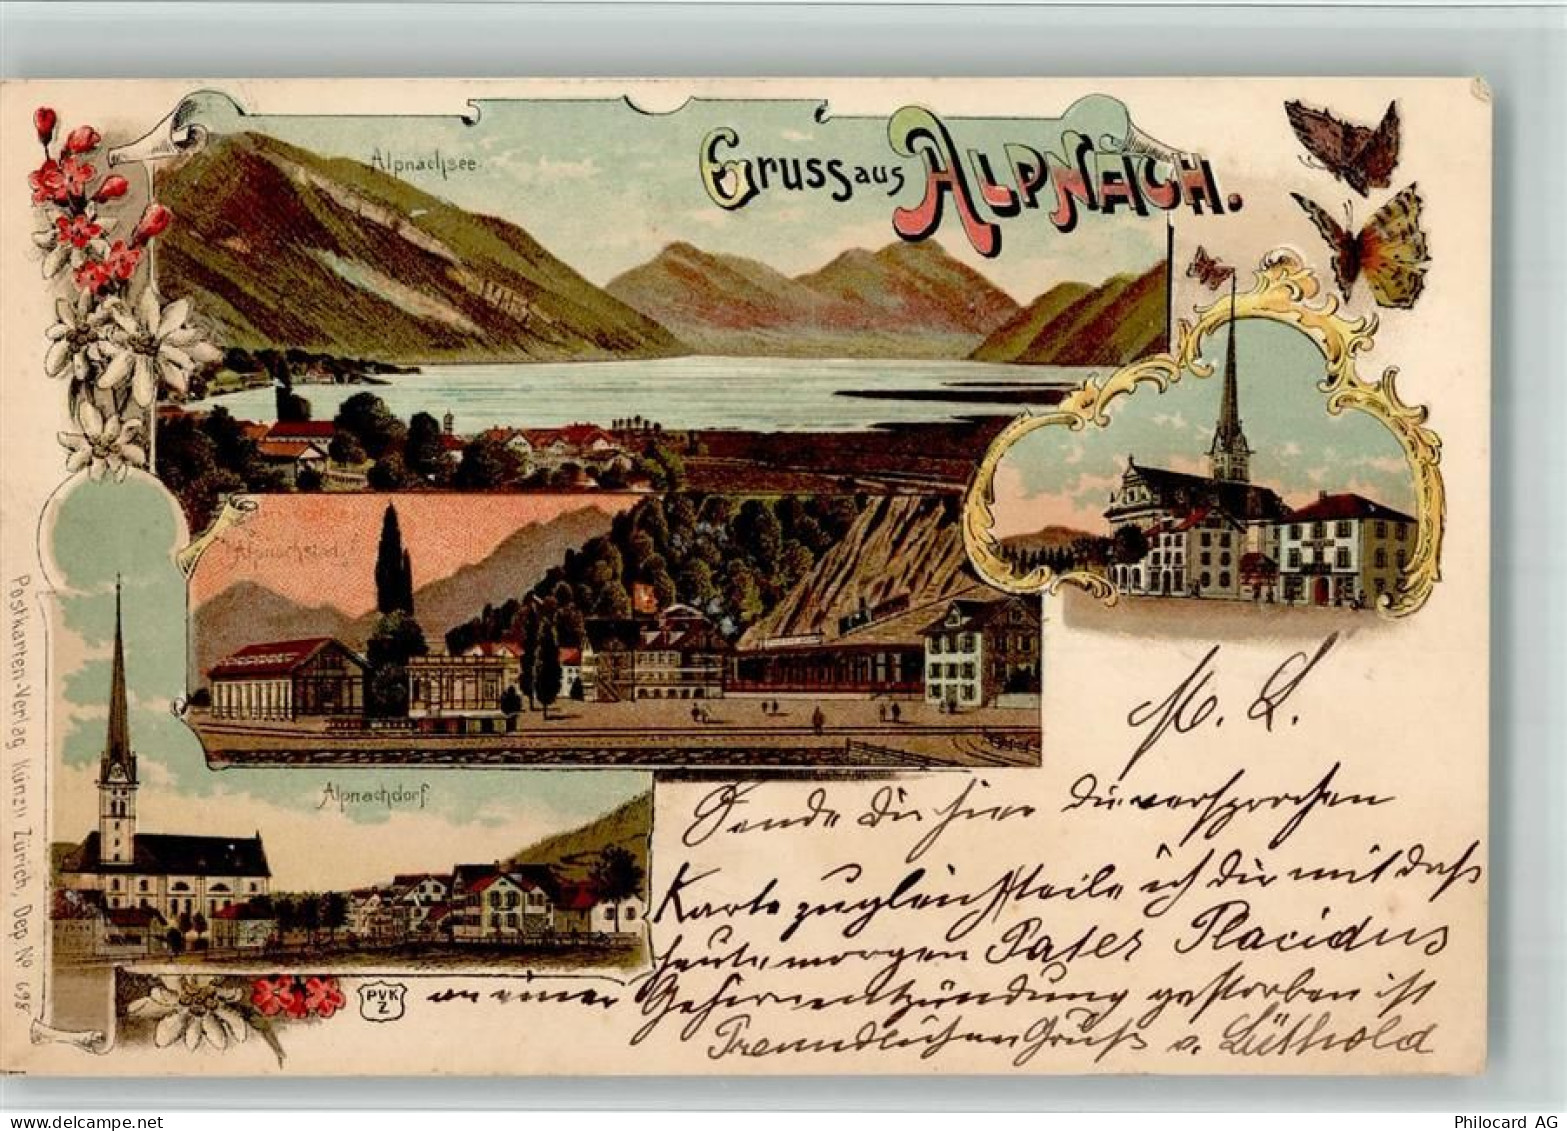 Gruss aus ALPNACH.
Alpnachsee.
Alpnachstad.
Alpnachdorf.
Postkarten-Verlag Künzli Zürich, Dep. No 698
PVK
Z
M. L.
Sende Dir hier die versprochen
Karte zugleich theile ich dir mit daß
heute morgen Pater Placidus
an einer Gehirnentzündung gestorben ist
Freundlichen Gruß v. Lüthold
Philocard AG
www.delcampe.net